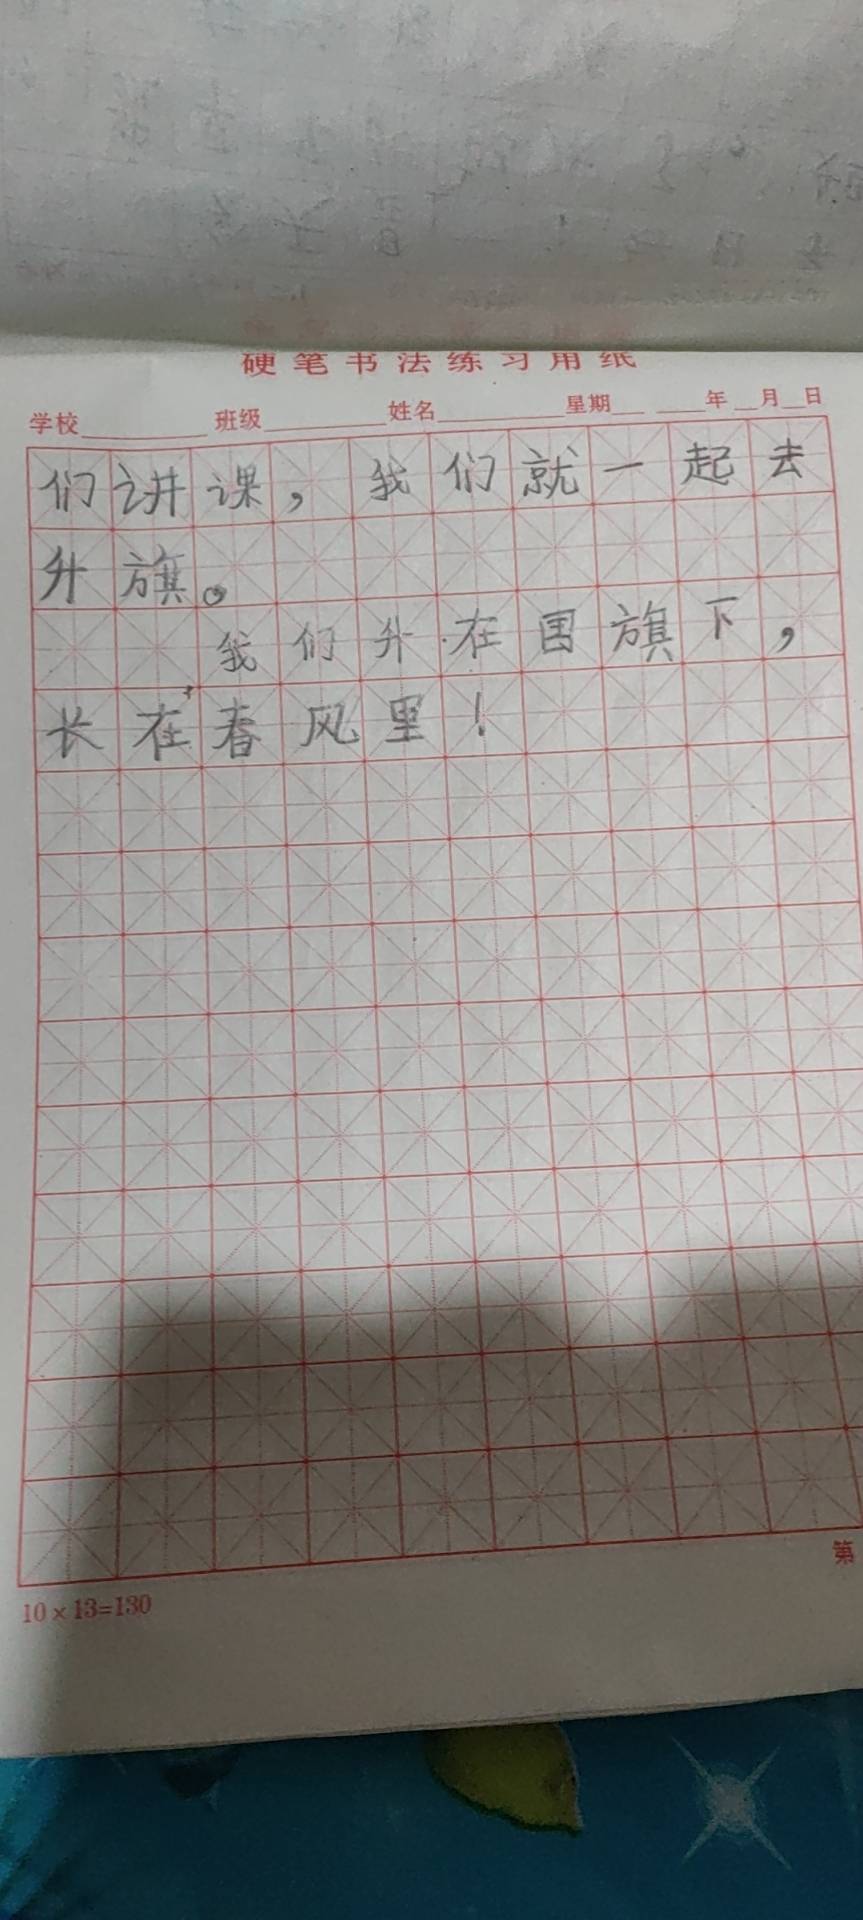 硬笔书法练习用纸
学校 班级 姓名 星期 年 月 日
们讲课，我们就一起去
升旗。
我们升在国旗下，
长在春风里！
第
10×13=130